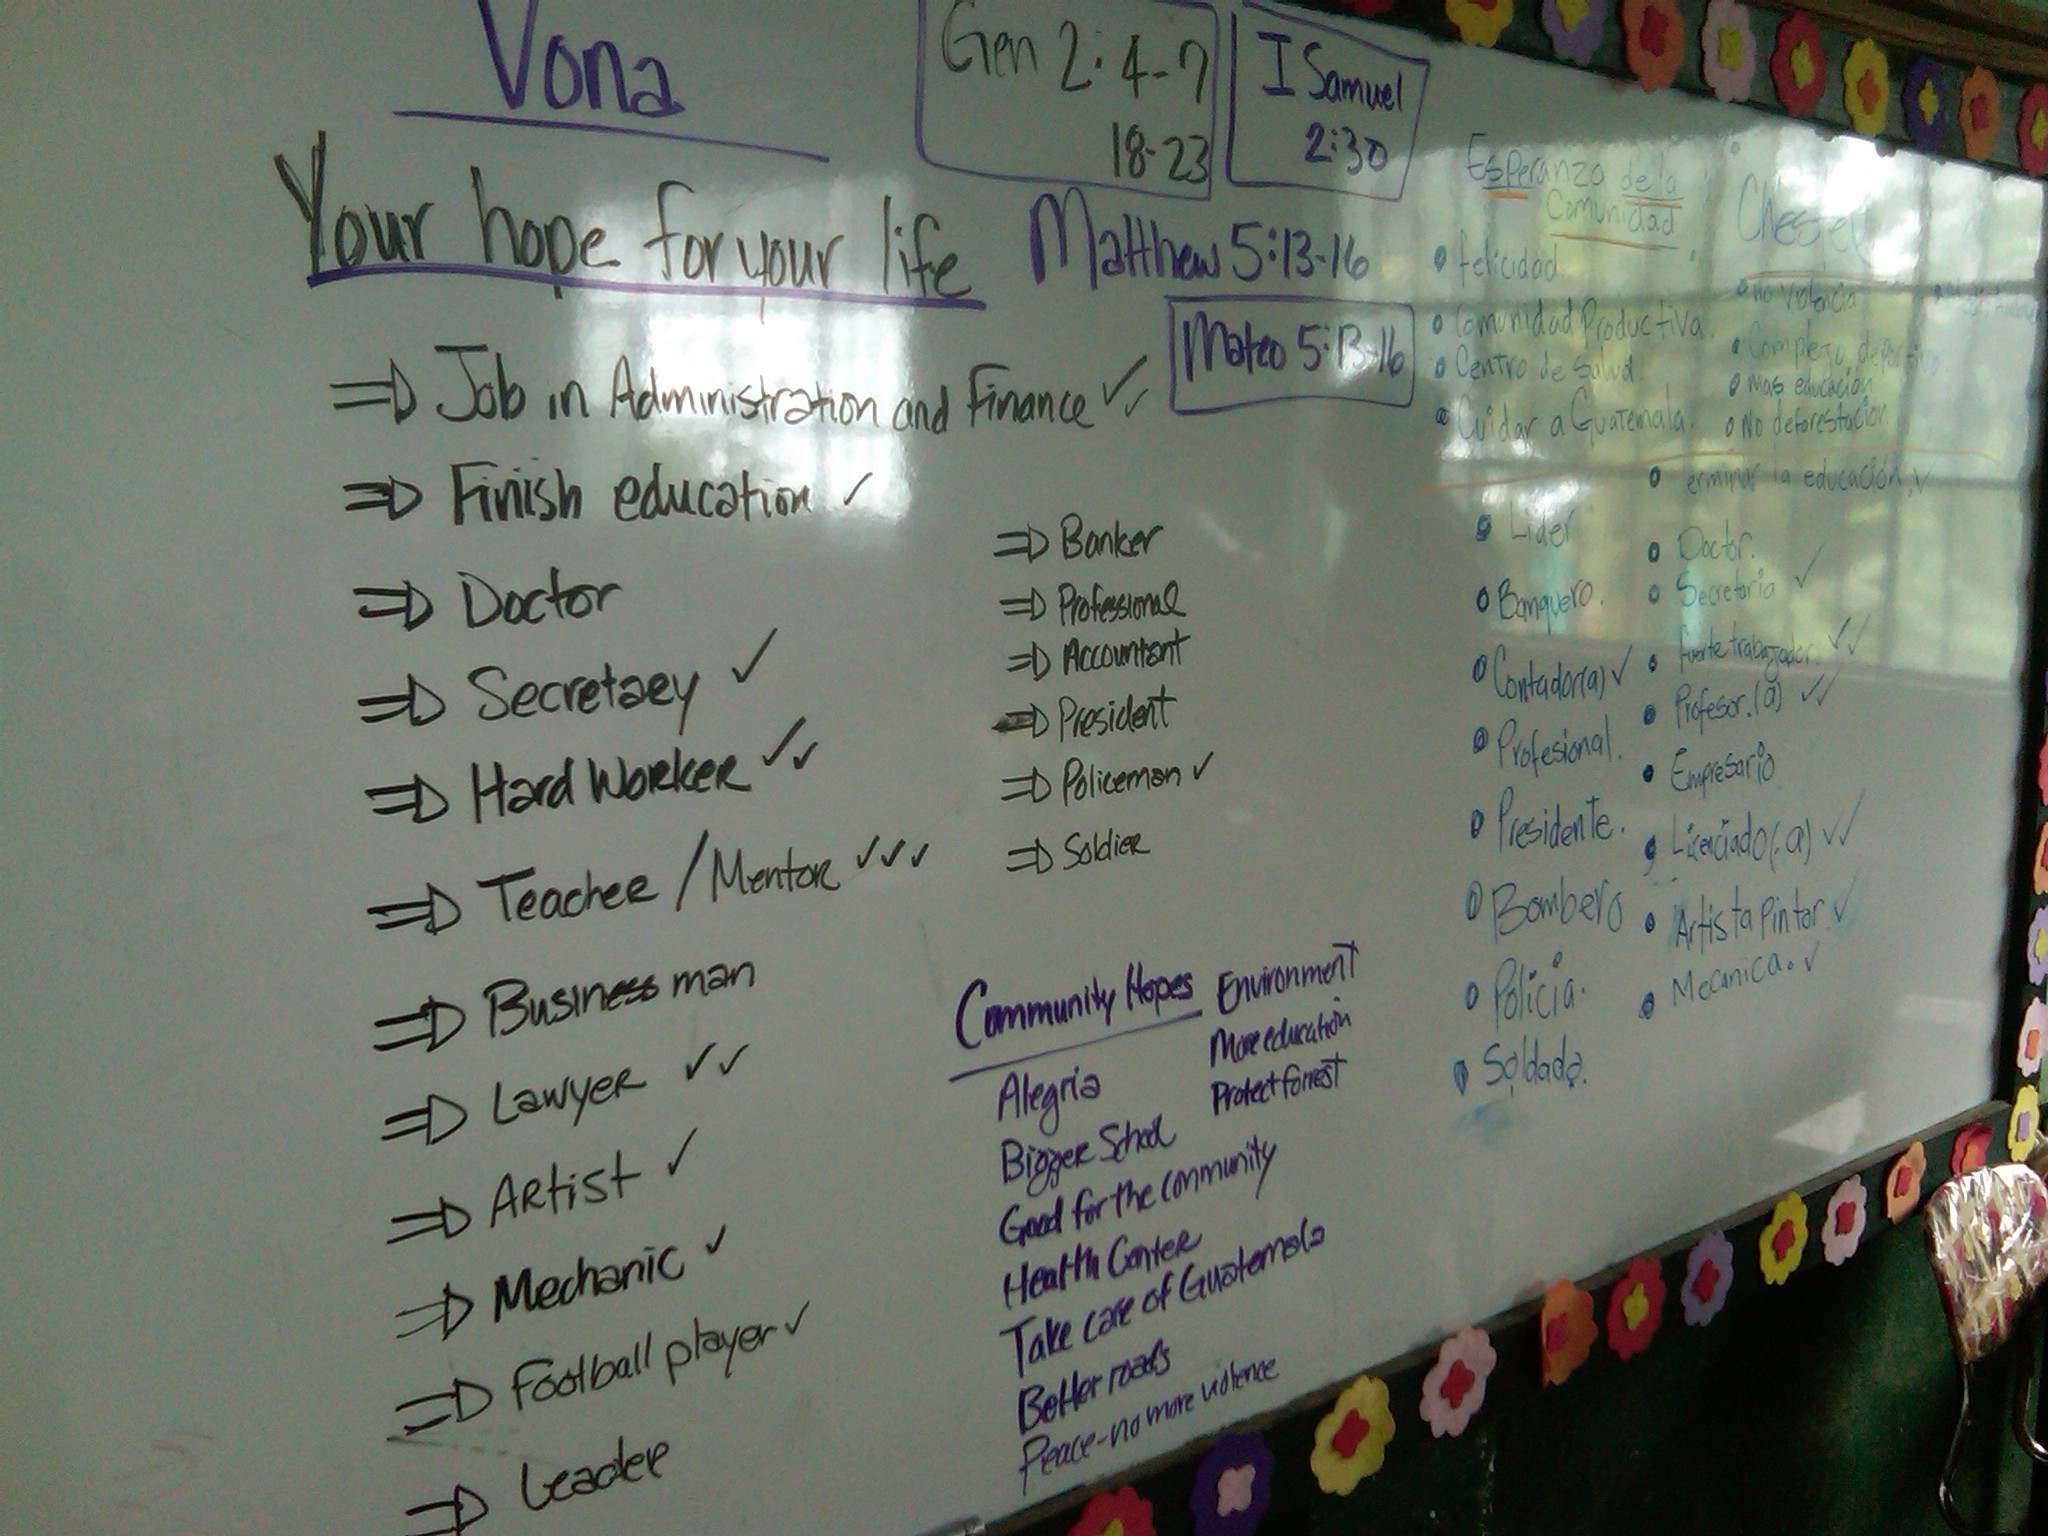 Vona
Gen 2:4-7
18-23
I Samuel
2:30
Your hope for your life
Matthew 5:13-16
Mateo 5:13-16
⇒ Job in Administration and Finance ✓✓
⇒ Finish education ✓
⇒ Doctor
⇒ Secretary ✓
⇒ Hard Worker ✓✓
⇒ Teacher / Mentor ✓✓✓
⇒ Business man
⇒ Lawyer ✓✓
⇒ Artist ✓
⇒ Mechanic ✓
⇒ Football player ✓
⇒ Leader
⇒ Banker
⇒ Professional
⇒ Accountant
⇒ President
⇒ Policeman ✓
⇒ Soldier
Community Hopes
Alegria
Bigger School
Good for the community
Health Center
Take care of Guatemala
Better roads
Peace-no more violence
Environment
More education
Protect forrest
Esperanza de la
Comunidad
• felicidad
• Comunidad Productiva.
• Centro de Salud.
• Cuidar a Guatemala.
• No violencia
• Complejo deportivo
• Mas educación
• No deforestación
• Lider
• Banquero.
• Contador(a) ✓
• Profesional.
• Presidente.
• Bombero
• Policia.
• Soldado.
• erminar la educación. ✓
• Doctor.
• Secretaria ✓
• fuerte trabajador. ✓✓
• Profesor.(a) ✓✓
• Empresario
• Licenciado(.a) ✓✓
• Artista Pintor ✓
• Mecanica. ✓